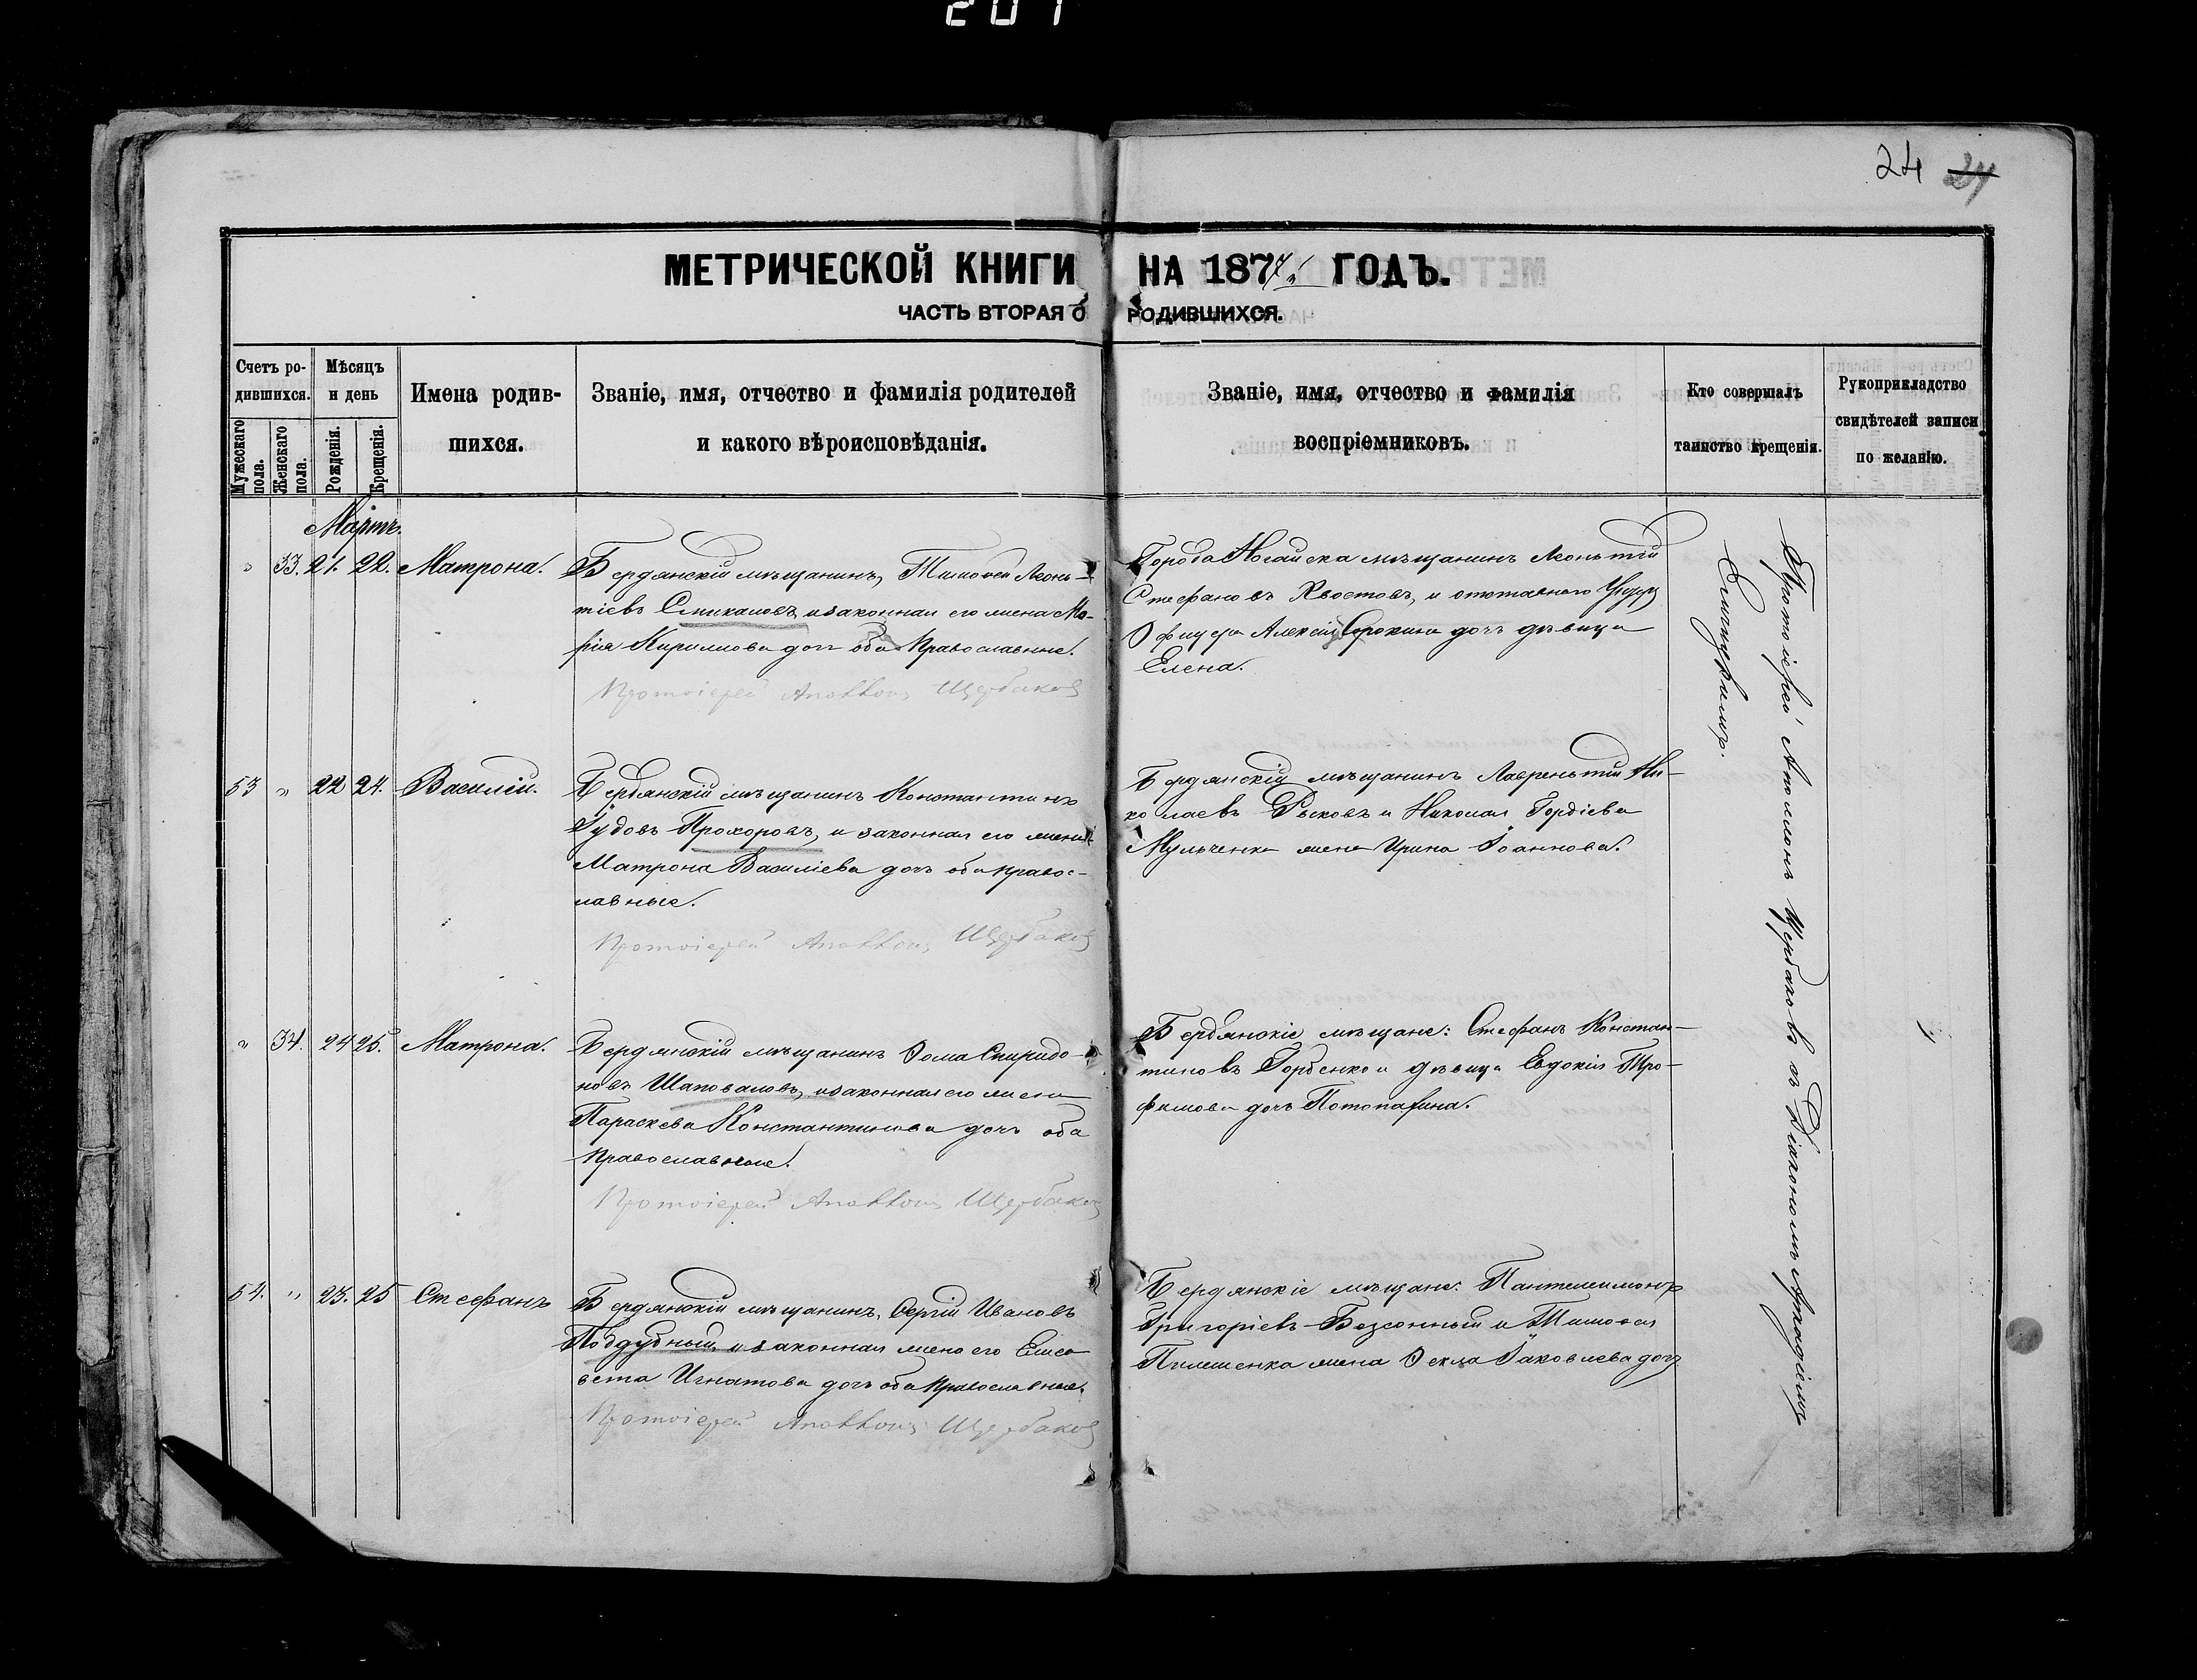 201
24 24
МЕТРИЧЕСКОЙ КНИГИ НА 187 ГОДЪ.
ЧАСТЬ ВТОРАЯ О РОДИВШИХСЯ.
Счетъ ро-
дившихся.
Мужескаго пола.
Женскаго пола.
Мѣсяцъ
и день
Рожденія.
Крещенія.
Имена родив-
шихся.
Званіе, имя, отчество и фамилія родителей
и какого вѣроисповѣданія.
Званіе, имя, отчество и фамилія
воспріемниковъ.
Кто совершалъ
таинство крещенія.
Рукоприкладство
свидѣтелей записи
по желанію.
Мартъ.
" 33. 21. 22. Матрона.
Бердянскій мѣщанинъ, Тимофей Леонь-
тіевъ Стикаловъ, и законная его жена Ма-
рія Кирилова доч. оба Православные.
Протоіерей Аполлонъ Щербаковъ
Города Ногайска мѣщанинъ Леоньтій
Стефановъ Хвостовъ, и отставного Ундеръ
Офицера Алексія Сорокина дочь дѣвица
Елена.
53 " 22 24. Василій.
Бердянскій мѣщанинъ Константинъ
Іудовъ Прохоровъ, и законная его жена
Матрона Василіева дочь оба Правос-
лавные.
Протоіерей Аполлонъ Щербаковъ
Бердянскій мѣщанинъ Лавреньтій Ни-
колаевъ Рыковъ и Николая Гордіева
Мульченка жена Ирина Іоаннова.
" 34. 24 25. Матрона.
Бердянскій мѣщанинъ Ѳома Спиридо-
новъ Шаповаловъ, и законная его жена
Параскева Константинова дочь оба
Православные.
Протоіерей Аполлонъ Щербаковъ
Бердянскіе мѣщане: Стефанъ Констан-
тиновъ Горбенко и дѣвица Евдокія Тро-
фимова дочь Потопахина.
54. " 23. 25 Стефанъ
Бердянскій мѣщанинъ, Сергій Ивановъ
Поддубный, и законная жена его Елиса
вета Игнатова дочь оба Православные.
Протоіерей Аполлонъ Щербаковъ
Бердянскіе мѣщане: Пантелеимонъ
Григоріевъ Безсонный и Тимофея
Пилешенка жена Ѳекла Іаковлева дочь
Протоіерей Аполлонъ Щербаковъ съ Діакономъ Аркадіемъ